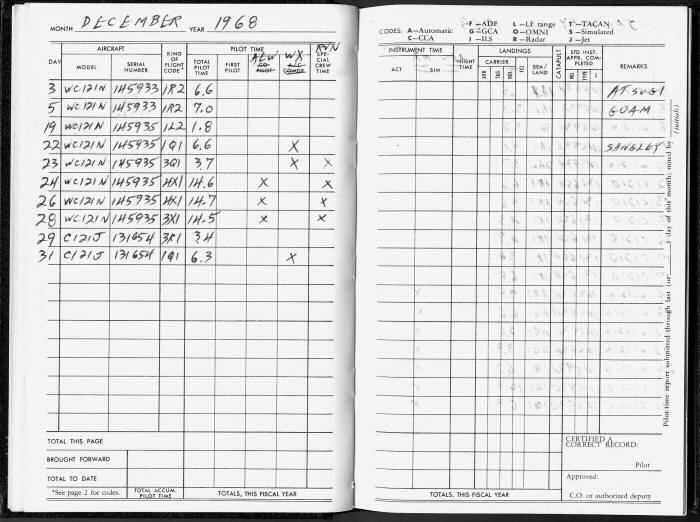 MONTH DECEMBER YEAR 1968
AIRCRAFT
PILOT TIME
DAY
MODEL
SERIAL NUMBER
KIND OF FLIGHT CODE*
TOTAL PILOT TIME
FIRST PILOT
AEW
CO PILOT
WX
A/C COMDR
RVN
SPECIAL CREW TIME
3 WC121N 145933 1R2 6.6
5 WC121N 145933 1R2 7.0
19 WC121N 145935 1L2 1.8
22 WC121N 145935 1Q1 6.6 X
23 WC121N 145935 3Q1 3.7 X X
24 WC121N 145935 HX1 14.6 X X
26 WC121N 145935 HX1 14.7 X X
28 WC121N 145935 3X1 14.5 X X
29 C121J 131654 3R1 3.4
31 C121J 131654 1Q1 6.3 X
TOTAL THIS PAGE
BROUGHT FORWARD
TOTAL TO DATE
*See page 2 for codes.
TOTAL ACCUM. PILOT TIME
TOTALS, THIS FISCAL YEAR
CODES: A—Automatic
C—CCA
F—ADF
G—GCA
I—ILS
L—LF range
O—OMNI
R—Radar
T—TACAN
S—Simulated
J—Jet
INSTRUMENT TIME
ACT
SIM
NIGHT TIME
LANDINGS
CARRIER
ARR
T&G
BOL
FCL
SEA/LAND
CATAPULT
STD INST. APPR. COMPLETED
NO.
TYPE
S
REMARKS
ATSUGI
GUAM
SANGLEY
TOTALS, THIS FISCAL YEAR
CERTIFIED A CORRECT RECORD:
Pilot
Approved:
C.O. or authorized deputy
Pilot-time report submitted through last (or ____) day of this month, noted by ____ (initials)